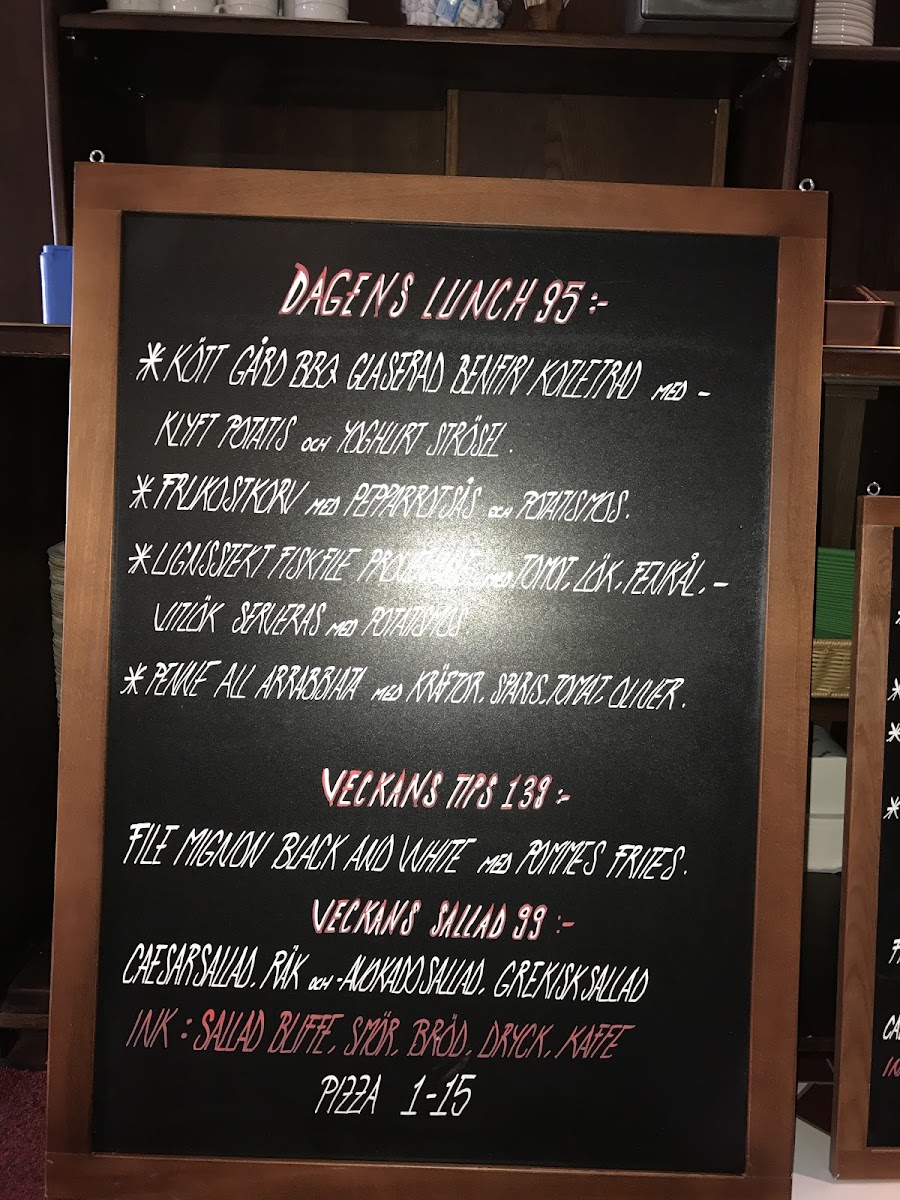 DAGENS LUNCH 95:-
* KÖTT GÅRD BBQ GLASERAD BENFIRI KOTLETRAD MED -
KLYFT POTATIS OCH YOGHURT STRÖSEL.
* FRUKOSTKORV MED PEPPARROTSÅS OCH POTATISMOS.
* LIGNSSTEKT FISKFILE MED TOMOT, LÖK, FENKÅL, -
VITLÖK SERVERAS MED POTATISMOS.
* PENNE ALL ARRABBIATA MED KRÄFTOR, SPARIS, TOMAT, OLIVER.
VECKANS TIPS 139:-
FILE MIGNON BLACK AND WHITE MED POMMES FRITES.
VECKANS SALLAD 99:-
CAESARSALLAD, RÄK OCH -AVOKADOSALLAD, GREKISKSALLAD
INK: SALLAD BUFFE, SMÖR, BRÖD, DRYCK, KAFFE
PIZZA 1-15